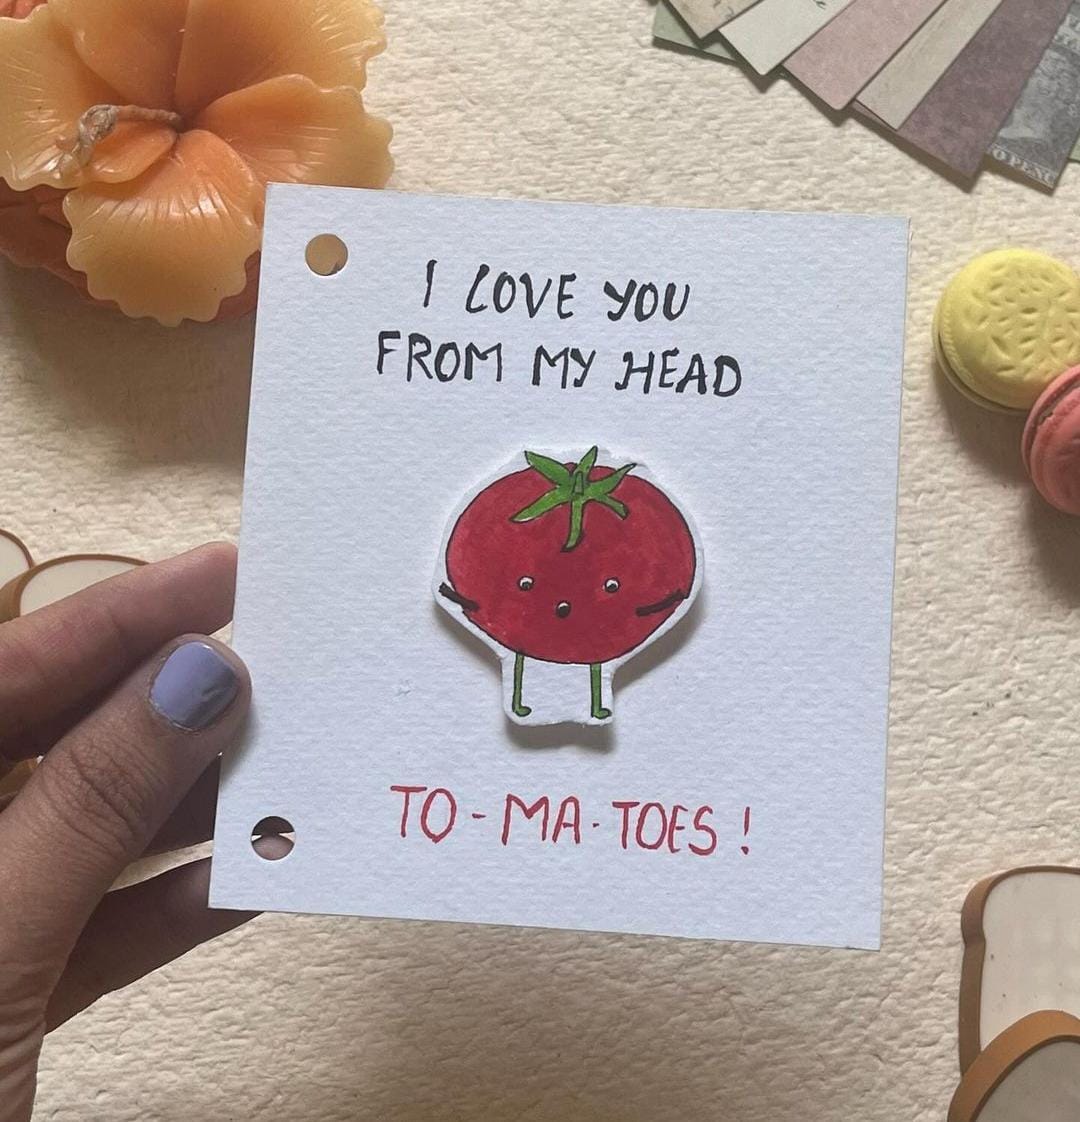 I LOVE YOU
FROM MY HEAD
TO-MA-TOES!